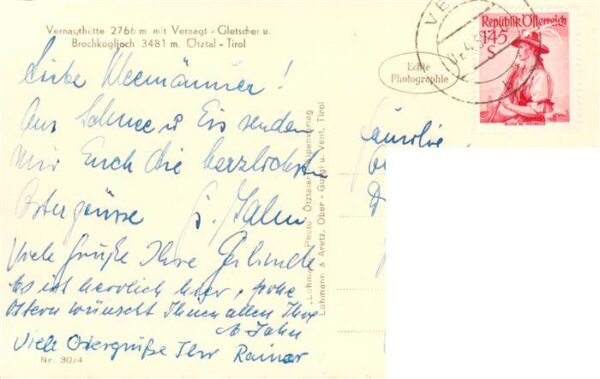 Vernagthütte 2766 m mit Vernagt - Gletscher u.
Brochkogljoch 3481 m. Ötztal - Tirol
Liebe Weemänner!
Aus Schnee u Eis senden
wir Euch die herzlichsten
Ostergrüsse G. Jahn
Viele Grüße Ihre Gerlinde
Es ist herrlich hier, frohe
Ostern wünscht Ihnen allen Ihre
Jahn
Viele Ostergrüße Ihr Rainer
Nr. 30/4
Echte
Photographie
Republik Österreich
1.45
Familie
"Lohmann" Photo Ötztaler Alpenverlag
Lohmann & Aretz, Ober - Gurgl u. Vent, Tirol